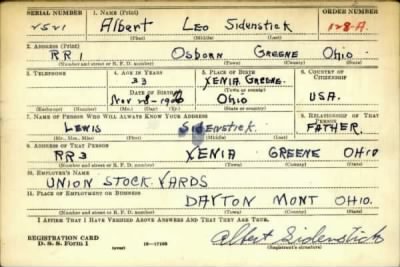 SERIAL NUMBER 1. NAME (Print) ORDER NUMBER
2521 Albert Leo Sidenstick 128-A.
(First) (Middle) (Last)
2. ADDRESS (Print)
RR1 Osborn Greene Ohio
(Number and street or R. F. D. number) (Town) (County) (State)
3. TELEPHONE 4. AGE IN YEARS 5. PLACE OF BIRTH 6. COUNTRY OF CITIZENSHIP
33 XENIA GREENE.
(Town or county)
DATE OF BIRTH
Nov 28-1906 Ohio USA.
(Exchange) (Number) (Mo.) (Day) (Yr.) (State or country)
7. NAME OF PERSON WHO WILL ALWAYS KNOW YOUR ADDRESS 8. RELATIONSHIP OF THAT PERSON
LEWIS SIDENSTICK. FATHER.
(Mr., Mrs., Miss) (First) (Middle) (Last)
9. ADDRESS OF THAT PERSON
RR3 XENIA GREENE OHIO
(Number and street or R. F. D. number) (Town) (County) (State)
10. EMPLOYER'S NAME
UNION STOCK YARDS
11. PLACE OF EMPLOYMENT OR BUSINESS
DAYTON MONT OHIO.
(Number and street or R. F. D. number) (Town) (County) (State)
I AFFIRM THAT I HAVE VERIFIED ABOVE ANSWERS AND THAT THEY ARE TRUE.
REGISTRATION CARD
D. S. S. Form 1 (over) 16—17105 Albert Sidenstick
(Registrant's signature)